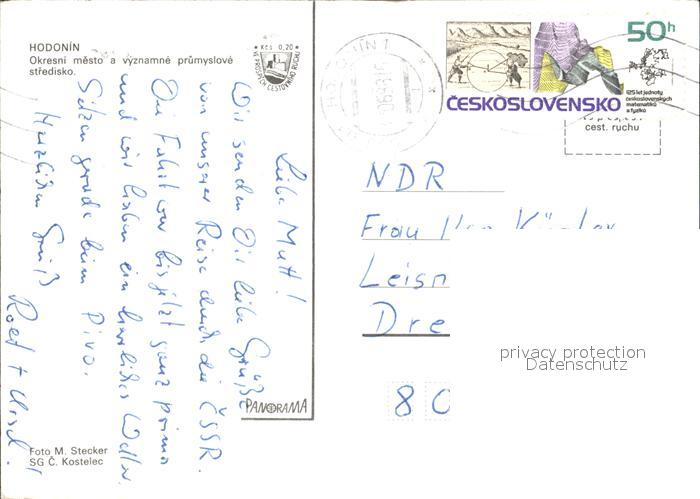 HODONÍN
Okresní město a významné průmyslové
středisko.
Kčs 0,20
VE PROSPĚCH CESTOVNÍHO RUCHU
Liebe Mutt!
Wir senden Dir liebe Grüße
von unserer Reise durch die ČSSR.
Die Fahrt war bis jetzt ganz prima
und wir haben ein herrliches Wetter.
Sitzen gerade beim Pivo.
Herzlichen Gruß
PANORAMA
Foto M. Stecker
SG Č. Kostelec
HODONÍN 1
50h
ČESKOSLOVENSKO
125 let jednoty
československých
matematiků
a fyziků
cest. ruchu
NDR
Frau
Leisn
Dre
80
privacy protection
Datenschutz